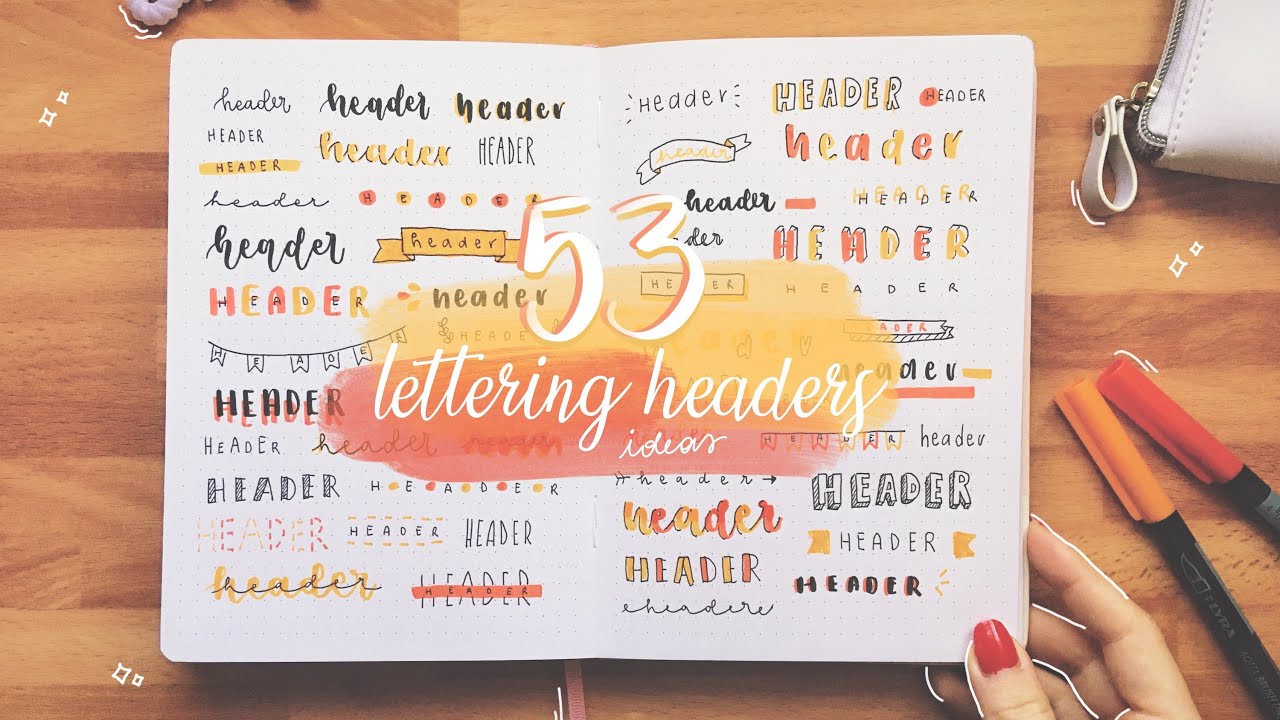 header header header
HEADER header HEADER
HEADER
header HEADER
header header
HEADER header
HEADER HEADER
HEADER
HEADER header header
HEADER HEADER
HEADER HEADER HEADER
header HEADER
Header HEADER HEADER
header header
header HEADER
HEADER
HEADER HEADER
HEADER
header
HEADER header
header HEADER
header HEADER
HEADER HEADER
eheadere
53
lettering headers
ideas
PEYRA